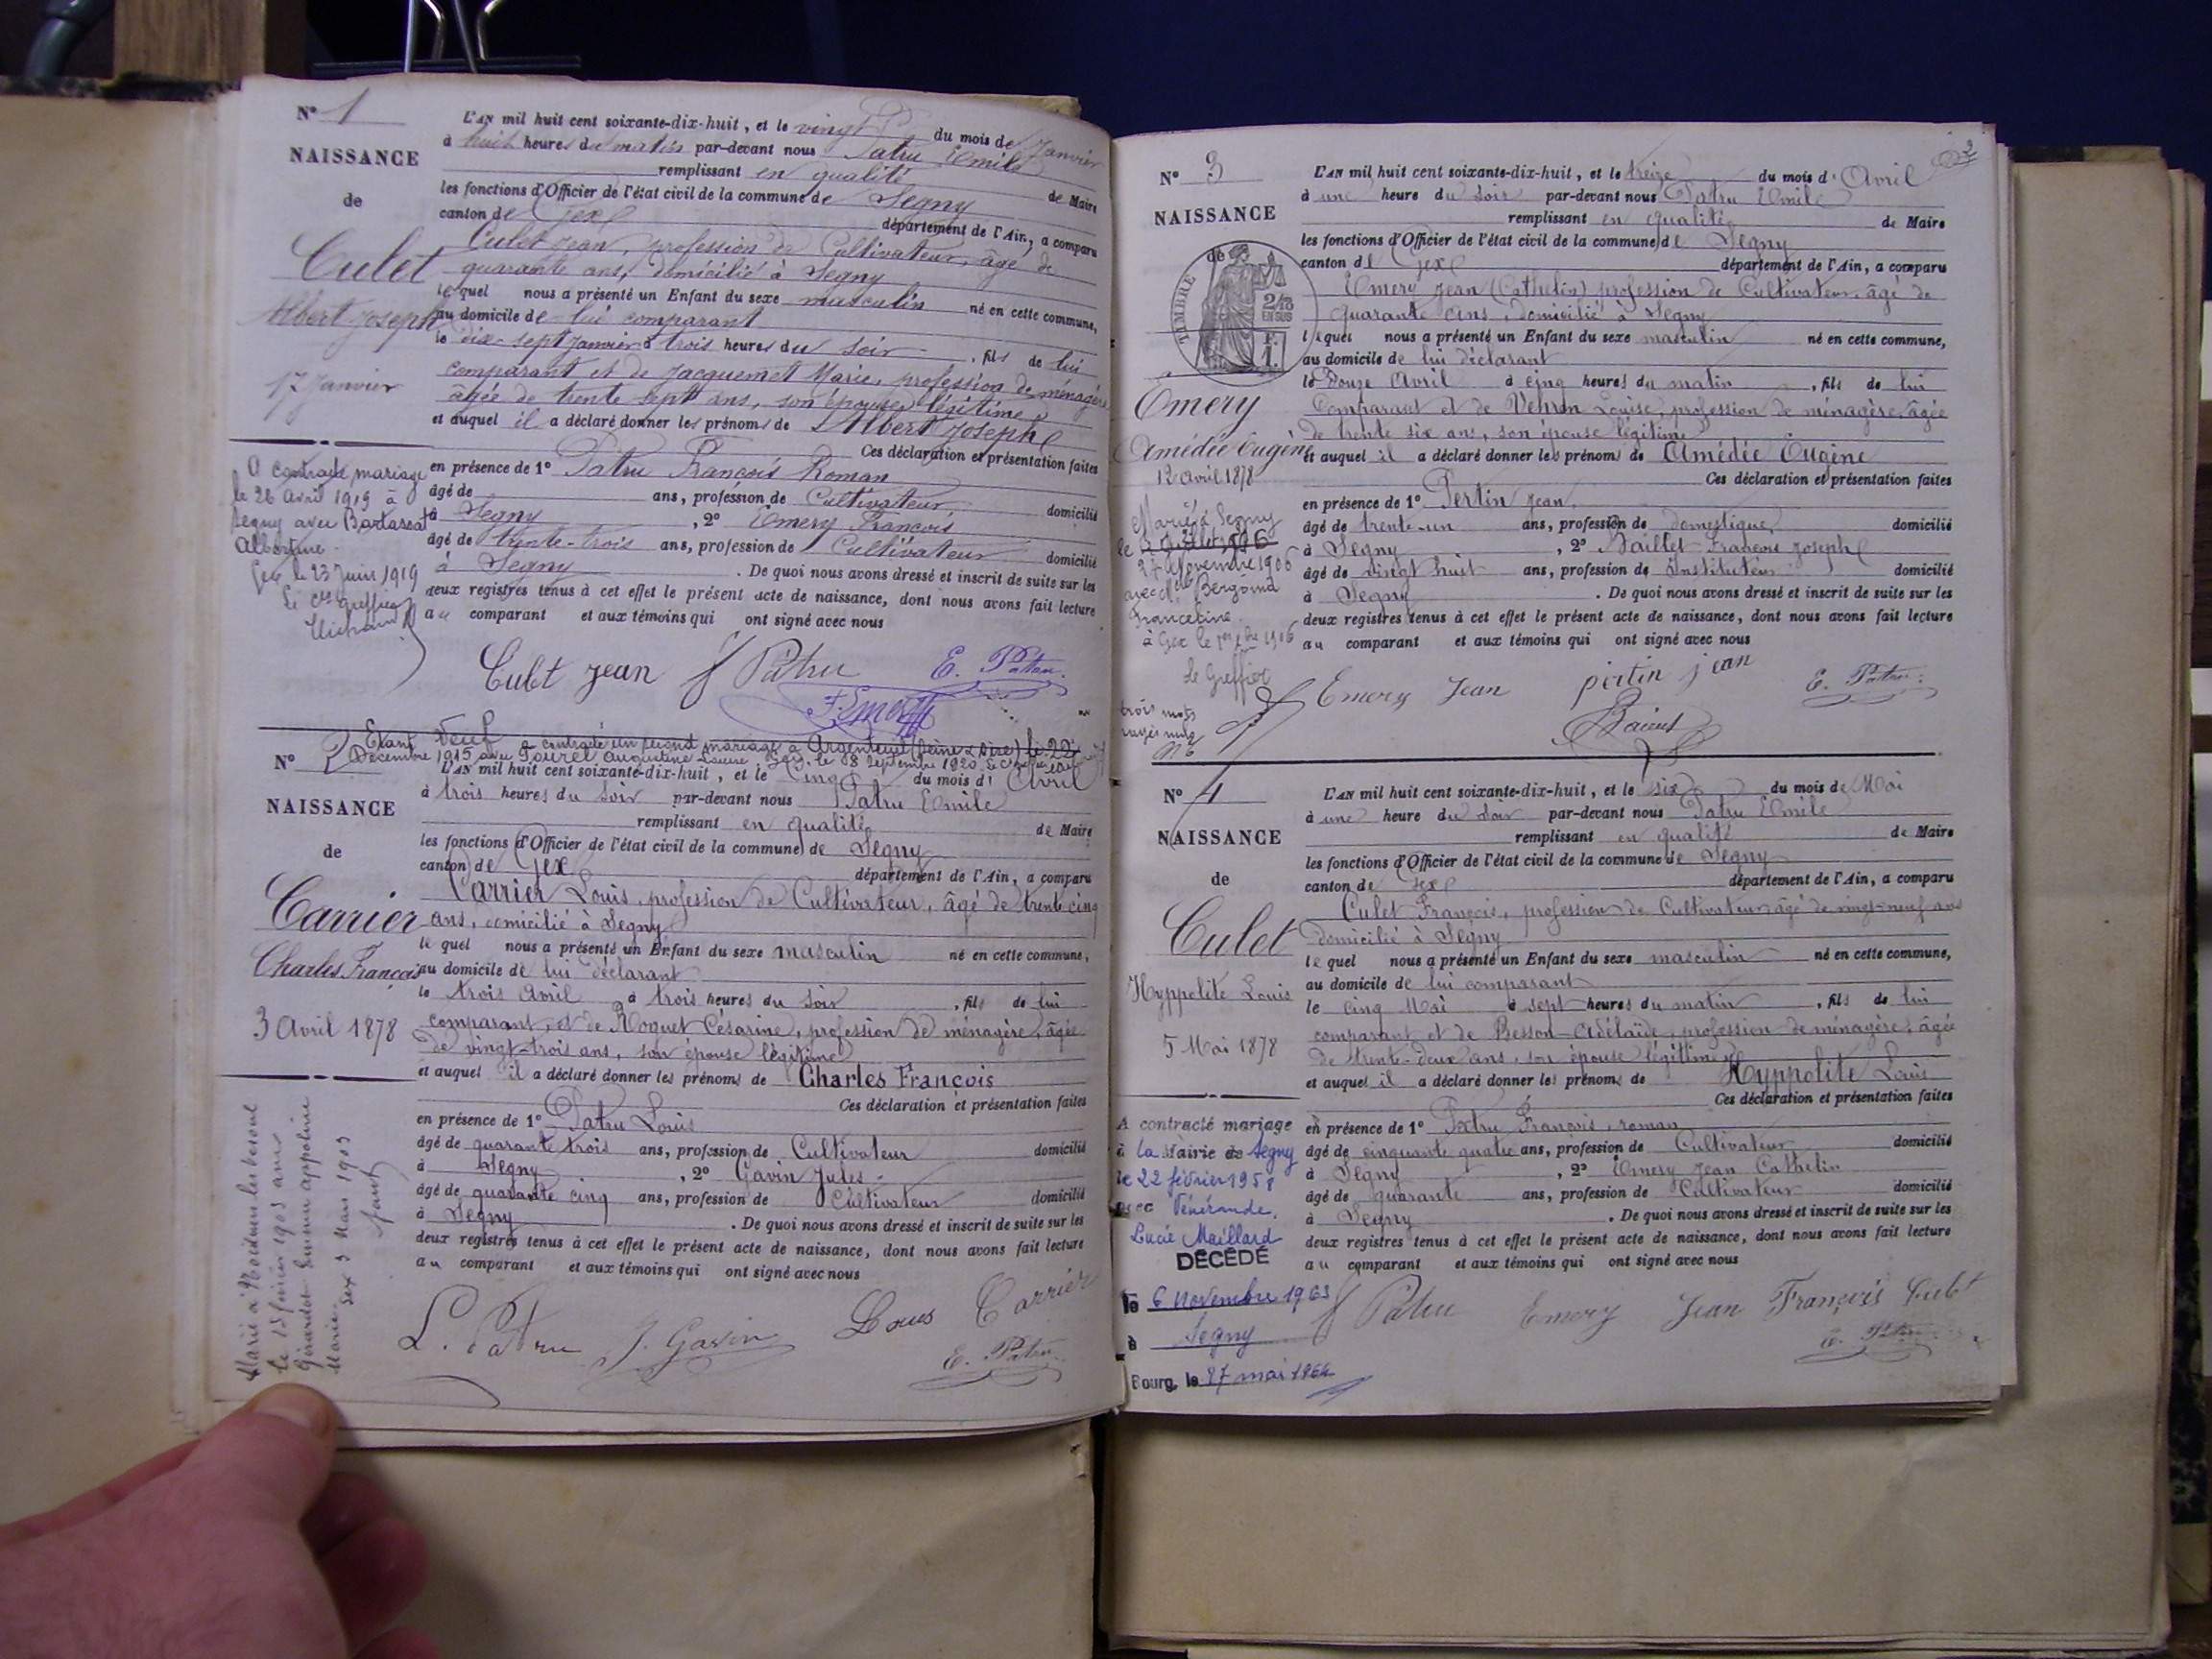 N° 1
NAISSANCE
de
Culet
Albert Joseph
17 Janvier
A contracté mariage
le 26 Avril 1919 à
Segny avec
Albertine
Gex le 23 Juin 1919
Le Greffier
L'AN mil huit cent soixante-dix-huit, et le vingt du mois de Janvier
à huit heures du matin par-devant nous Patru Emile
remplissant en qualité de Maire
les fonctions d'Officier de l'état civil de la commune de Segny
canton de Gex département de l'Ain, a comparu
Culet Jean, profession de Cultivateur, âgé de
quarante ans, domicilié à Segny
lequel nous a présenté un Enfant du sexe masculin né en cette commune,
au domicile de lui comparant
le dix-sept Janvier à trois heures du soir, fils de lui
comparant et de Jacquemet Marie, profession de ménagère
âgée de trente sept ans, son épouse légitime
et auquel il a déclaré donner les prénoms de Albert Joseph
Ces déclaration et présentation faites
en présence de 1° Patru François Roman
âgé de ans, profession de Cultivateur, domicilié
à Segny, 2° Emery François
âgé de trente-trois ans, profession de Cultivateur domicilié
à Segny. De quoi nous avons dressé et inscrit de suite sur les
deux registres tenus à cet effet le présent acte de naissance, dont nous avons fait lecture
au comparant et aux témoins qui ont signé avec nous
Culet Jean f Patru E. Patru
F. Emery
Etant veuf a contracté un second mariage à Argenteuil (Seine & Oise) le 22
Décembre 1915 avec Augustine Gex, le 8 Septembre 1920
N° 2
NAISSANCE
de
Carrier
Charles François
3 Avril 1878
Marié à
le 15 février 1903 avec
Girardot appoline
Marie. Gex 3 Mars 1903
L'AN mil huit cent soixante-dix-huit, et le cinq du mois d'Avril
à trois heures du soir par-devant nous Patru Emile
remplissant en qualité de Maire
les fonctions d'Officier de l'état civil de la commune de Segny
canton de Gex département de l'Ain, a comparu
Carrier Louis, profession de Cultivateur, âgé de trente cinq
ans, domicilié à Segny
lequel nous a présenté un Enfant du sexe masculin né en cette commune,
au domicile de lui déclarant
le trois Avril à trois heures du soir, fils de lui
comparant, et de Roquet Césarine, profession de ménagère, âgée
de vingt-trois ans, son épouse légitime
et auquel il a déclaré donner les prénoms de Charles François
Ces déclaration et présentation faites
en présence de 1° Patru Louis
âgé de quarante trois ans, profession de Cultivateur domicilié
à Segny, 2° Gavin Jules
âgé de quarante cinq ans, profession de Cultivateur domicilié
à Segny. De quoi nous avons dressé et inscrit de suite sur les
deux registres tenus à cet effet le présent acte de naissance, dont nous avons fait lecture
au comparant et aux témoins qui ont signé avec nous
L. Patru J. Gavin Louis Carrier
E. Patru
2
N° 3
NAISSANCE
de
TIMBRE
2/10
EN SUS
F.
1.
Emery
Amédée Eugène
12 avril 1878
Marié à Segny
le
27 Novembre 1906
avec Bergoënd
Franceline
à Gex le 1906
Le Greffier
trois mots
rayés nuls
L'AN mil huit cent soixante-dix-huit, et le treize du mois d'Avril
à une heure du soir par-devant nous Patru Emile
remplissant en qualité de Maire
les fonctions d'Officier de l'état civil de la commune de Segny
canton de Gex département de l'Ain, a comparu
Emery Jean (Cathelin) profession de Cultivateur, âgé de
quarante ans, domicilié à Segny
lequel nous a présenté un Enfant du sexe masculin né en cette commune,
au domicile de lui déclarant
le Douze Avril à cinq heures du matin, fils de lui
Comparant et de Louise, profession de ménagère, âgée
de trente six ans, son épouse légitime
et auquel il a déclaré donner les prénoms de Amédée Eugène
Ces déclaration et présentation faites
en présence de 1° Pertin Jean
âgé de trente-un ans, profession de domestique domicilié
à Segny, 2° François Joseph
âgé de vingt huit ans, profession de Instituteur domicilié
à Segny. De quoi nous avons dressé et inscrit de suite sur les
deux registres tenus à cet effet le présent acte de naissance, dont nous avons fait lecture
au comparant et aux témoins qui ont signé avec nous
Emery Jean pertin jean E. Patru
N° 4
NAISSANCE
de
Culet
Hyppolite Louis
5 Mai 1878
A contracté mariage
à la Mairie de Segny
le 22 février 1958
avec Vénérande,
Lucie Maillard
DÉCÉDÉ
le 6 novembre 1963
à Segny
Bourg, le 27 mai 1964
L'AN mil huit cent soixante-dix-huit, et le six du mois de Mai
à une heure du soir par-devant nous Patru Emile
remplissant en qualité de Maire
les fonctions d'Officier de l'état civil de la commune de Segny
canton de Gex département de l'Ain, a comparu
Culet François, profession de Cultivateur âgé de vingt-neuf ans
domicilié à Segny
lequel nous a présenté un Enfant du sexe masculin né en cette commune,
au domicile de lui comparant
le cinq Mai à sept heures du matin, fils de lui
comparant et de Besson Adélaïde, profession de ménagère, âgée
de trente-deux ans, son épouse légitime
et auquel il a déclaré donner les prénoms de Hyppolite Louis
Ces déclaration et présentation faites
en présence de 1° Patru François, roman
âgé de cinquante quatre ans, profession de Cultivateur domicilié
à Segny, 2° Emery Jean Cathelin
âgé de quarante ans, profession de Cultivateur domicilié
à Segny. De quoi nous avons dressé et inscrit de suite sur les
deux registres tenus à cet effet le présent acte de naissance, dont nous avons fait lecture
au comparant et aux témoins qui ont signé avec nous
f Patru Emery Jean François Culet
E. Patru